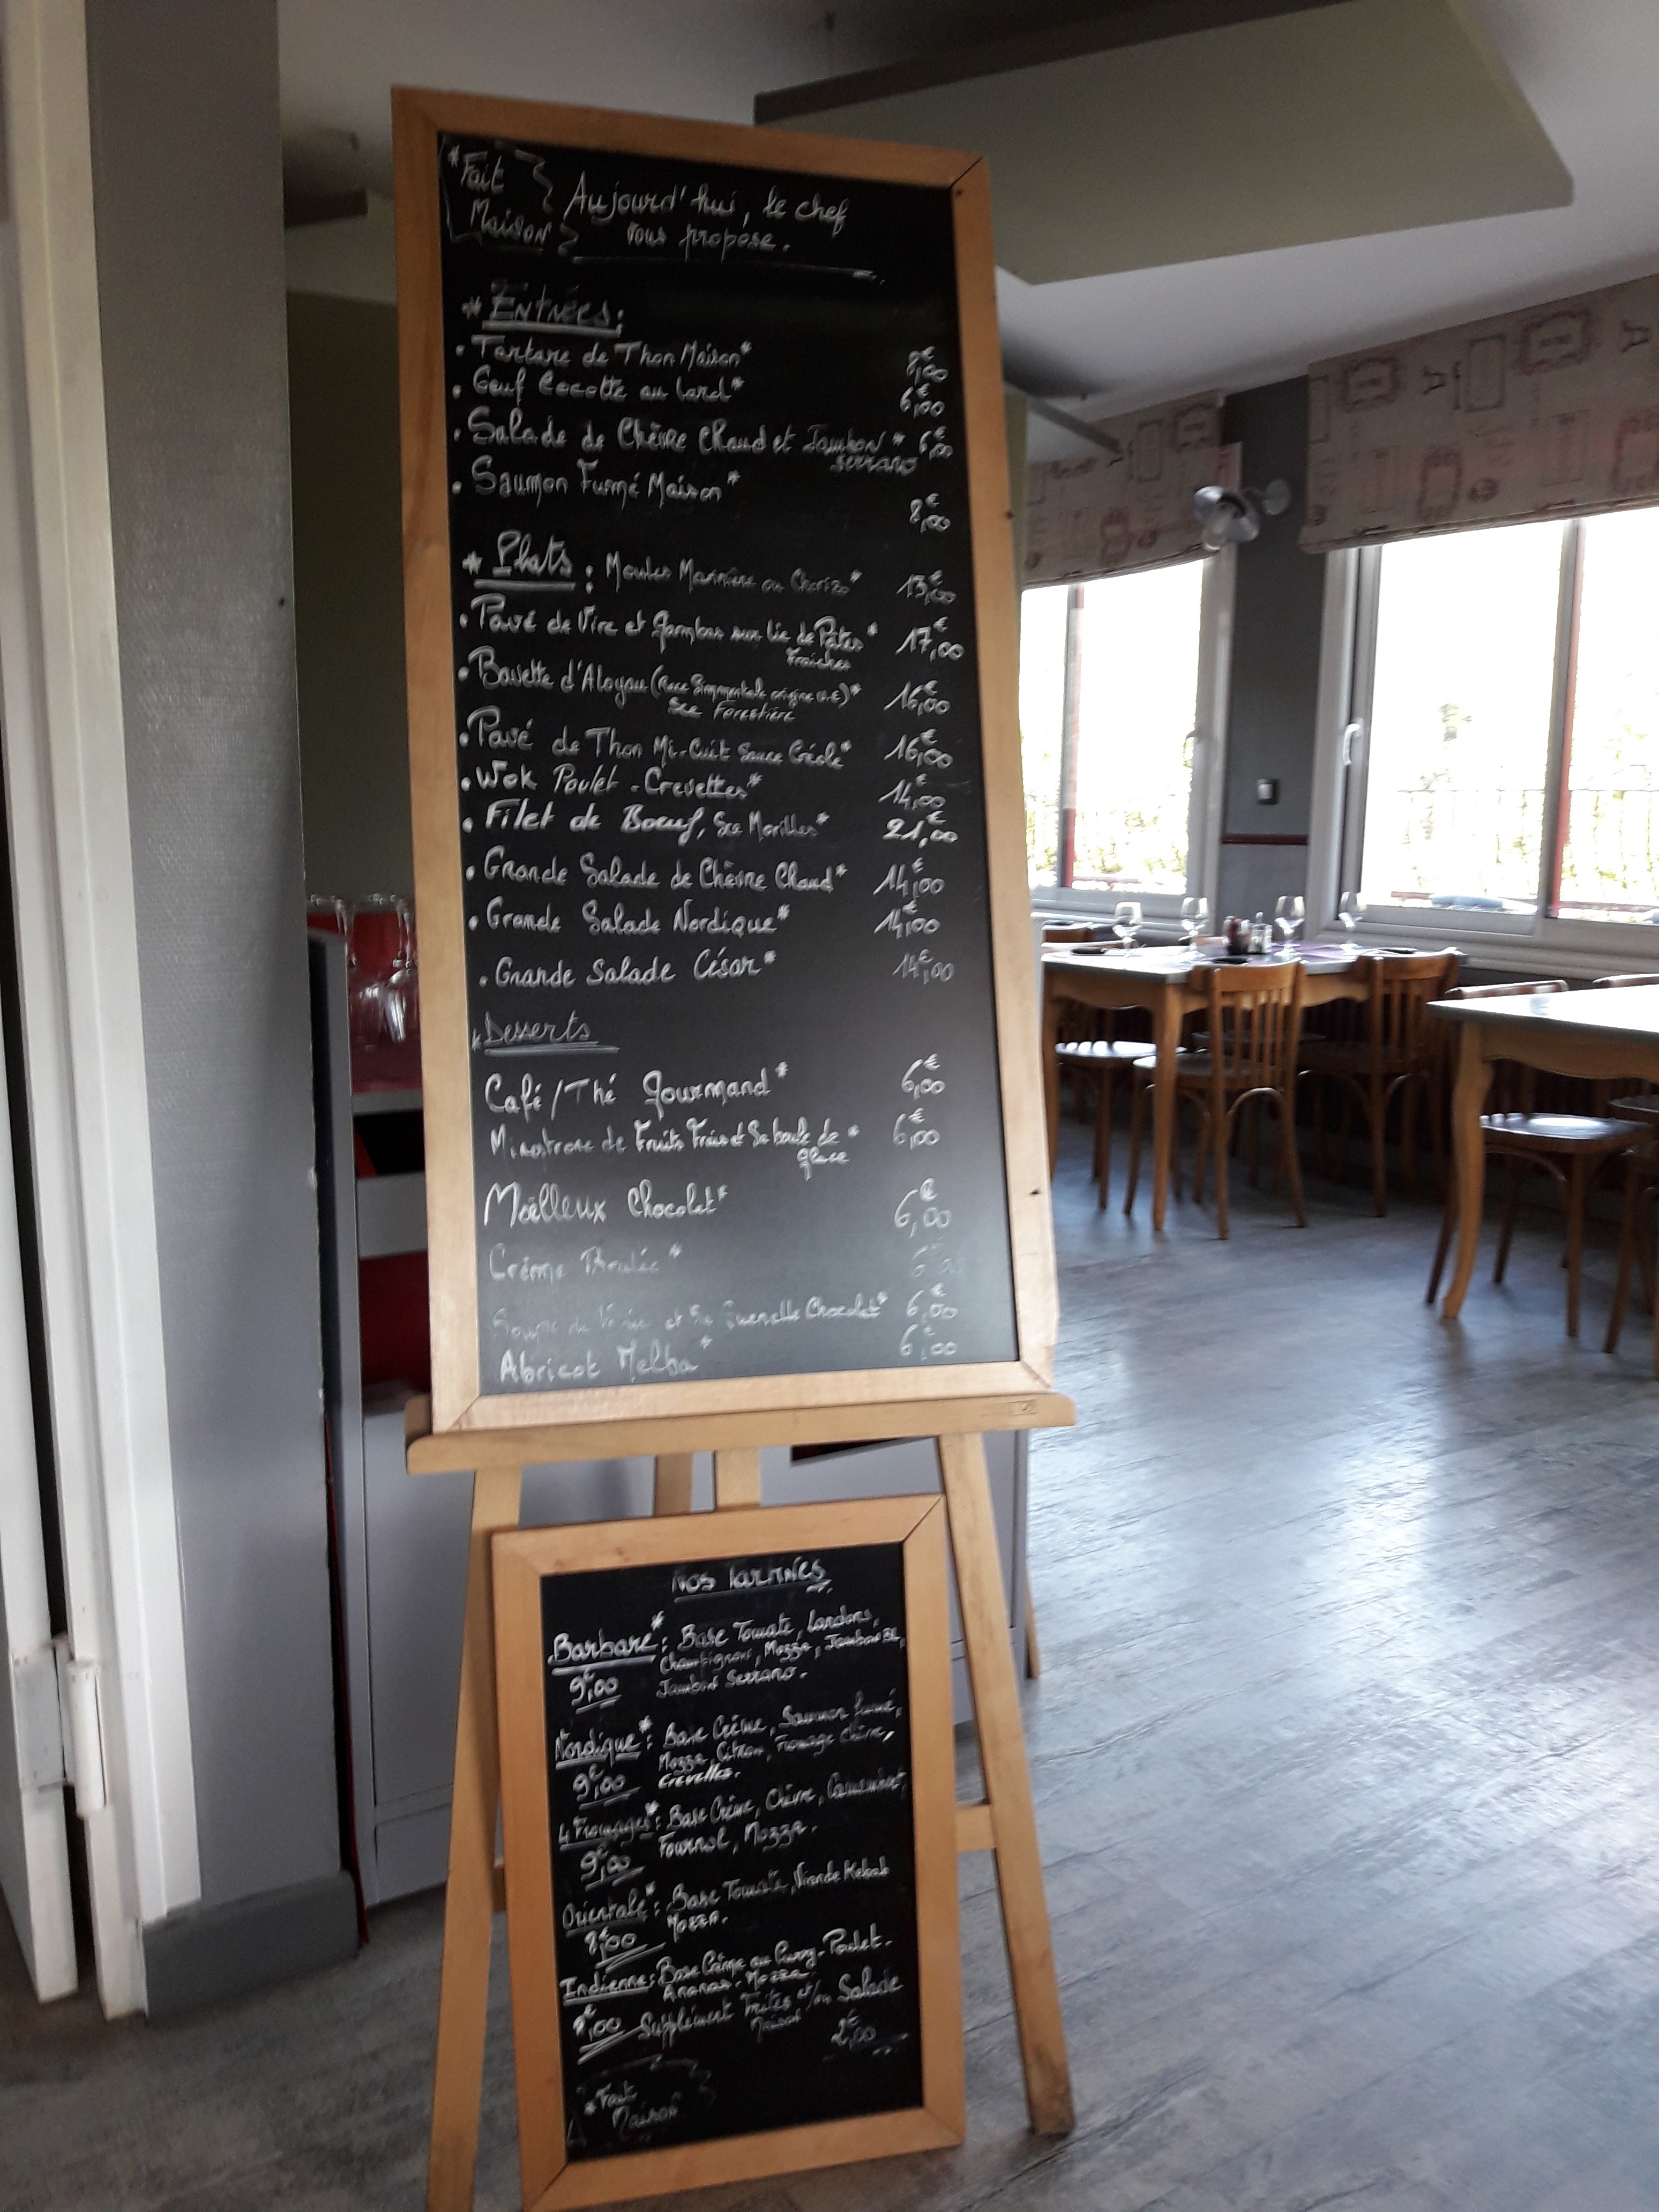 *Fait
Maison
Aujourd'hui, le chef
vous propose.
* Entrées:
• Tartare de Thon Maison*
• Oeuf Cocotte au lard* 6,00€
• Salade de Chèvre Chaud et Jambon * 6,00€
Serrano
• Saumon Fumé Maison* 8,00€
* Plats : Moules Marinière ou Chorizo* 13,00€
• Pavé de Vire et Gambas sur lie de Pâtes * 17,00€
Fraiches
• Bavette d'Aloyau (Race Simmentale origine u.e)* 16,00€
Sce Forestière
• Pavé de Thon Mi-Cuit Sauce Créole* 16,00€
• Wok Poulet - Crevettes* 14,00€
• Filet de Boeuf, Sce Morilles* 21,00€
• Grande Salade de Chèvre Chaud* 14,00€
• Grande Salade Nordique* 14,00€
• Grande Salade César* 14,00€
* Desserts
Café/Thé gourmand* 6,00€
Minestrone de Fruits Frais et Sa boule de * 6,00€
glace
Moëlleux Chocolat* 6,00€
Crème Brulée *
Soupe de et Sa Quenelle Chocolat* 6,00€
Abricot Melba* 6,00€
Nos Tartines
Barbare*: Base Tomate, lardons,
Champignons, Mozza, Jambon Bl,
9,00€ Jambon Serrano.
Nordique*: Base Crème, Saumon fumé,
Mozza, Citron, Fromage Chèvre,
9,00€ Crevettes.
4 Fromages*: Base Crème, Chèvre, Camembert,
9,00€ Fournol, Mozza.
Orientale*: Base Tomate, Viande Kebab
8,00€ Mozza.
Indienne: Base Crème au Curry-Poulet-
Ananas-Mozza
8,00€ Supplément Frites et/ou Salade
Maison 2,00€
*Fait
Maison